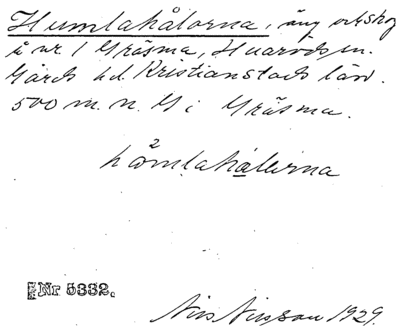 Humlahålorna, äng och skog
å nr. 1 Gräsma, Huaröds sn.
Gärds hd. Kristianstads län.
500 m. n. G i Gräsma.
2
hömlahålerna
Nr 5332.
Nils Nilsson 1929.